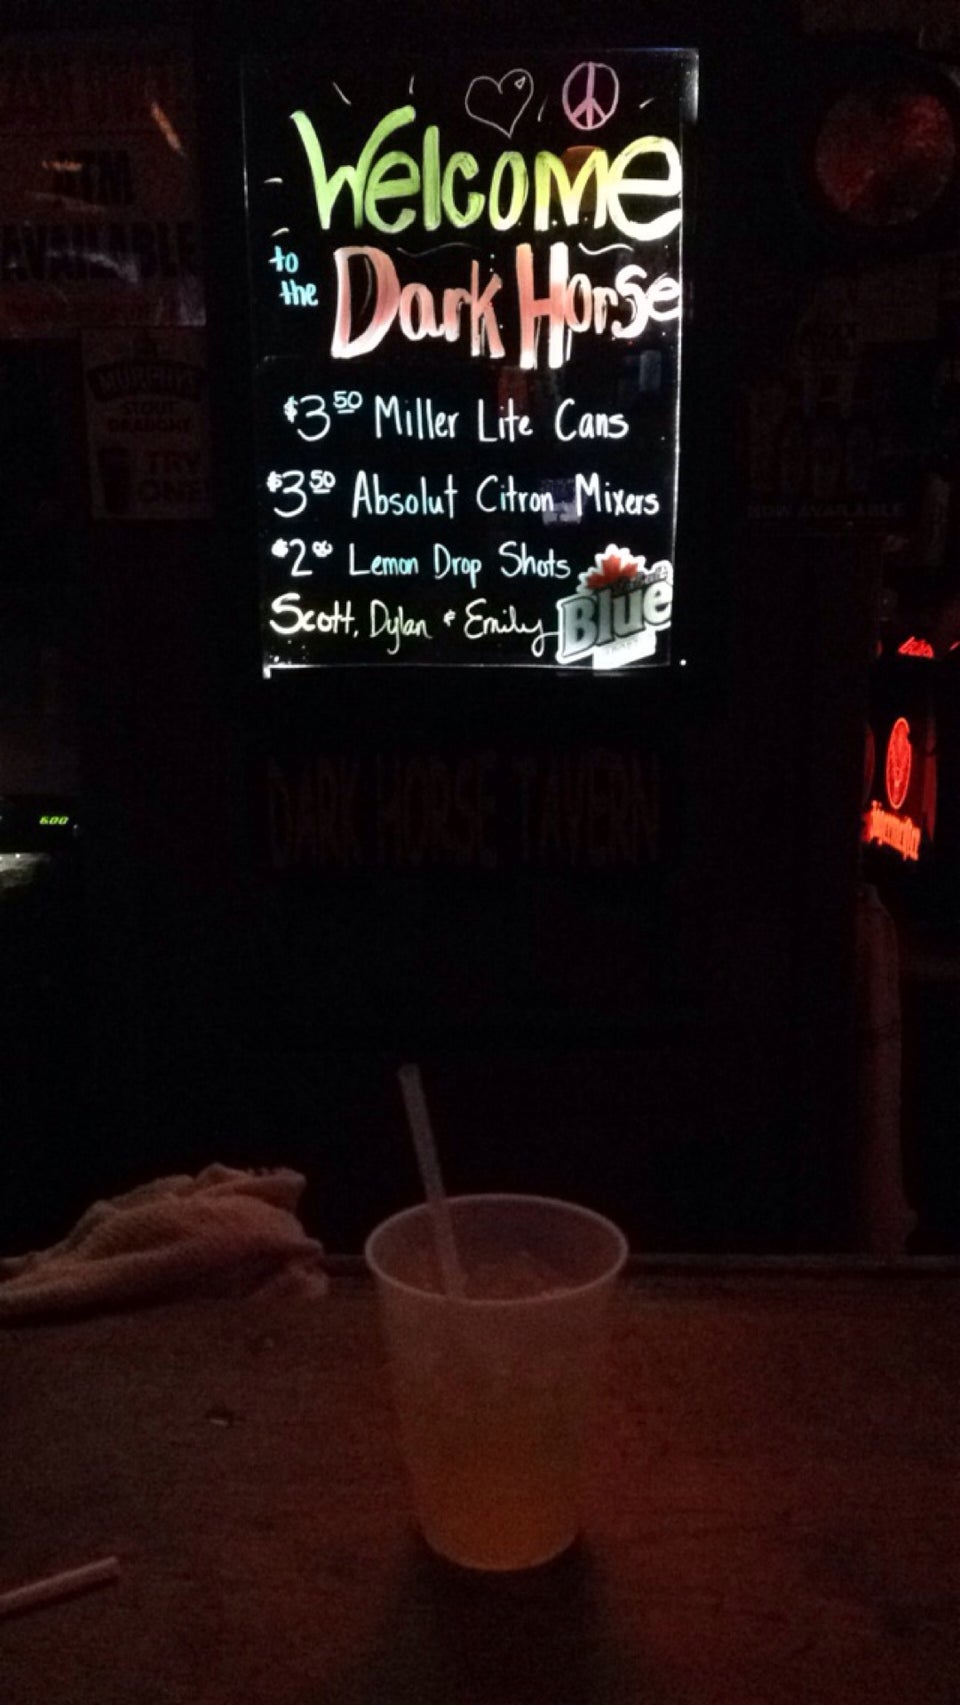 Welcome
to the Dark Horse
$3.50 Miller Lite Cans
$3.50 Absolut Citron Mixers
$2.00 Lemon Drop Shots
Scott, Dylan & Emily
Blue
DARK HORSE TAVERN
AVAILABLE
MURPHY'S
STOUT
DRAUGHT
TRY
ONE
NOW AVAILABLE
600
Jägermeister